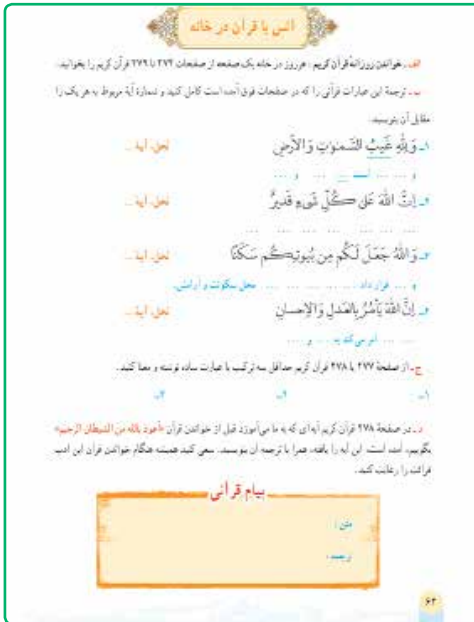 انس با قرآن در خانه
الف ـ خواندن روزانهٔ قرآن کریم : هر روز در خانه یک صفحه از صفحات ۲۷۴ تا ۲۷۹ قرآن کریم را بخوانید.
ب ـ ترجمهٔ این عبارات قرآنی را که در صفحات فوق آمده است کامل کنید و شمارهٔ آیهٔ مربوط به هر یک را
مقابل آن بنویسید.
۱ـ وَ لِلّٰهِ غَیبُ السَّمٰوٰتِ وَ الاَرضِ نحل، آیهٔ ...
و ... ... است ... ... و ...
۲ـ اِنَّ اللّٰهَ عَلیٰ کُلِّ شَیءٍ قَدیرٌ نحل، آیهٔ ...
... ... ... ... ... ... ...
۳ـ وَ اللّٰهُ جَعَلَ لَکُم مِن بُیوتِکُم سَکَنًا نحل، آیهٔ ...
و ... قرار داد ... ... ... ... محل سکونت و آرامش.
۴ـ اِنَّ اللّٰهَ یَأمُرُ بِالعَدلِ وَ الاِحسانِ نحل، آیهٔ ...
... ... امر می‌کند به ... و ...
ج ـ از صفحهٔ ۲۷۷ یا ۲۷۸ قرآن کریم حداقل سه ترکیب یا عبارت ساده نوشته و معنا کنید.
۱ـ ۲ـ ۳ـ
د ـ در صفحهٔ ۲۷۸ قرآن کریم آیه‌ای که به ما می‌آموزد قبل از خواندن قرآن «أعوذ بالله من الشیطان الرجیم»
بگوییم، آمده است. این آیه را یافته، همراه با ترجمه آن بنویسید. سعی کنید همیشه هنگام خواندن قرآن این ادب
قرائت را رعایت کنید.
پیام قرآنی
متن :
ترجمه :
۶۲